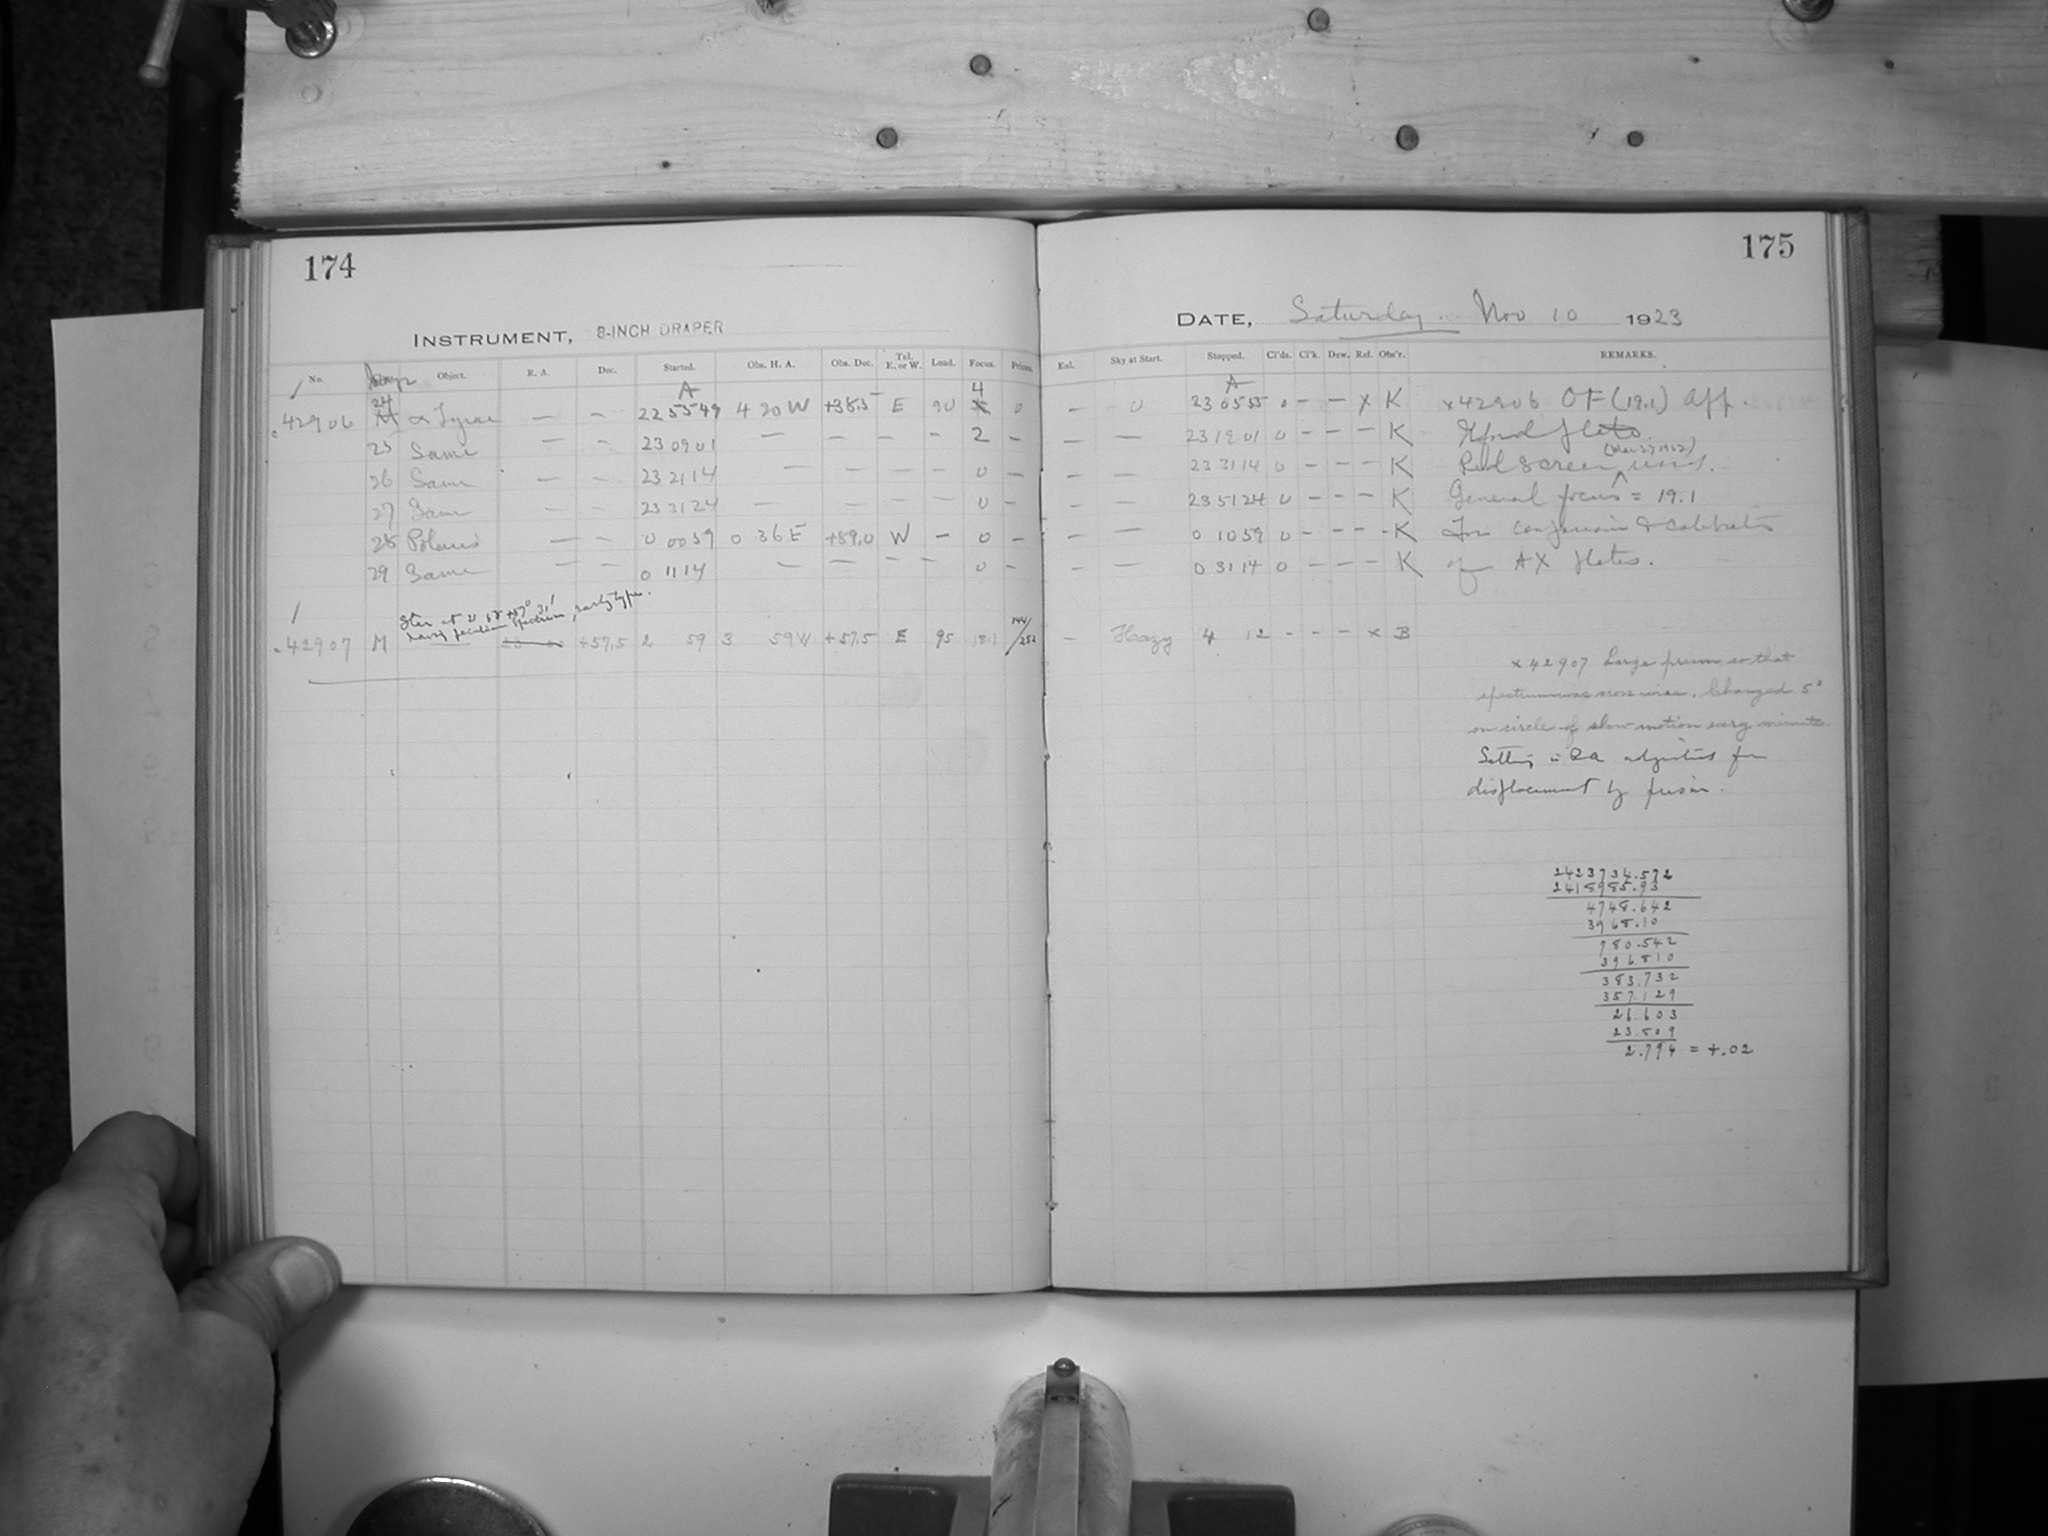 174
INSTRUMENT, 8-INCH DRAPER
No. Object. R. A. Dec. Started. Obs. H. A. Obs. Dec. Tel. E. or W. Load. Focus. Prism.
A 4
42906 24 α Lyrae — — 22 55 49 4 20 W +38.5 E 90 0
25 Same — — 23 09 01 — — — - 2 —
26 Same — — 23 21 14 — — — — 0 —
27 Same — — 23 31 24 — — — — 0 —
28 Polaris — — 0 00 59 0 36 E +89.0 W — 0 —
29 Same — — 0 11 14 — — — — 0 —
Star at +57° 31'
having peculiar spectrum, early type.
42907 M +57.5 2 59 3 59 W +57.5 E 95 18.1 144/252
175
DATE, Saturday Nov 10 1923
Enl. Sky at Start. Stopped. Cl'ds. Cl'k. Dew. Ref. Obs'r. REMARKS.
A
— 0 23 05 55 0 — — x K x42906 OF (19.1) Aff.
— — 23 19 01 0 — — — K
— — 23 31 14 0 — — — K Red Screen used.
— — 23 51 24 0 — — — K General focus = 19.1
— — 0 10 59 0 — — — K For comparison &
— — 0 31 14 0 — — — K of AX plates.
— Hazy 4 12 - - - x B
x 42907 Large prism so that
spectrum was cross wise. Changed 5°
on circle of slow motion every minute.
Setting in RA adjusted for
displacement by prism.
2423734.572
2418985.93
4748.642
3968.10
780.542
396.810
383.732
357.129
26.603
23.809
2.794 = +.02